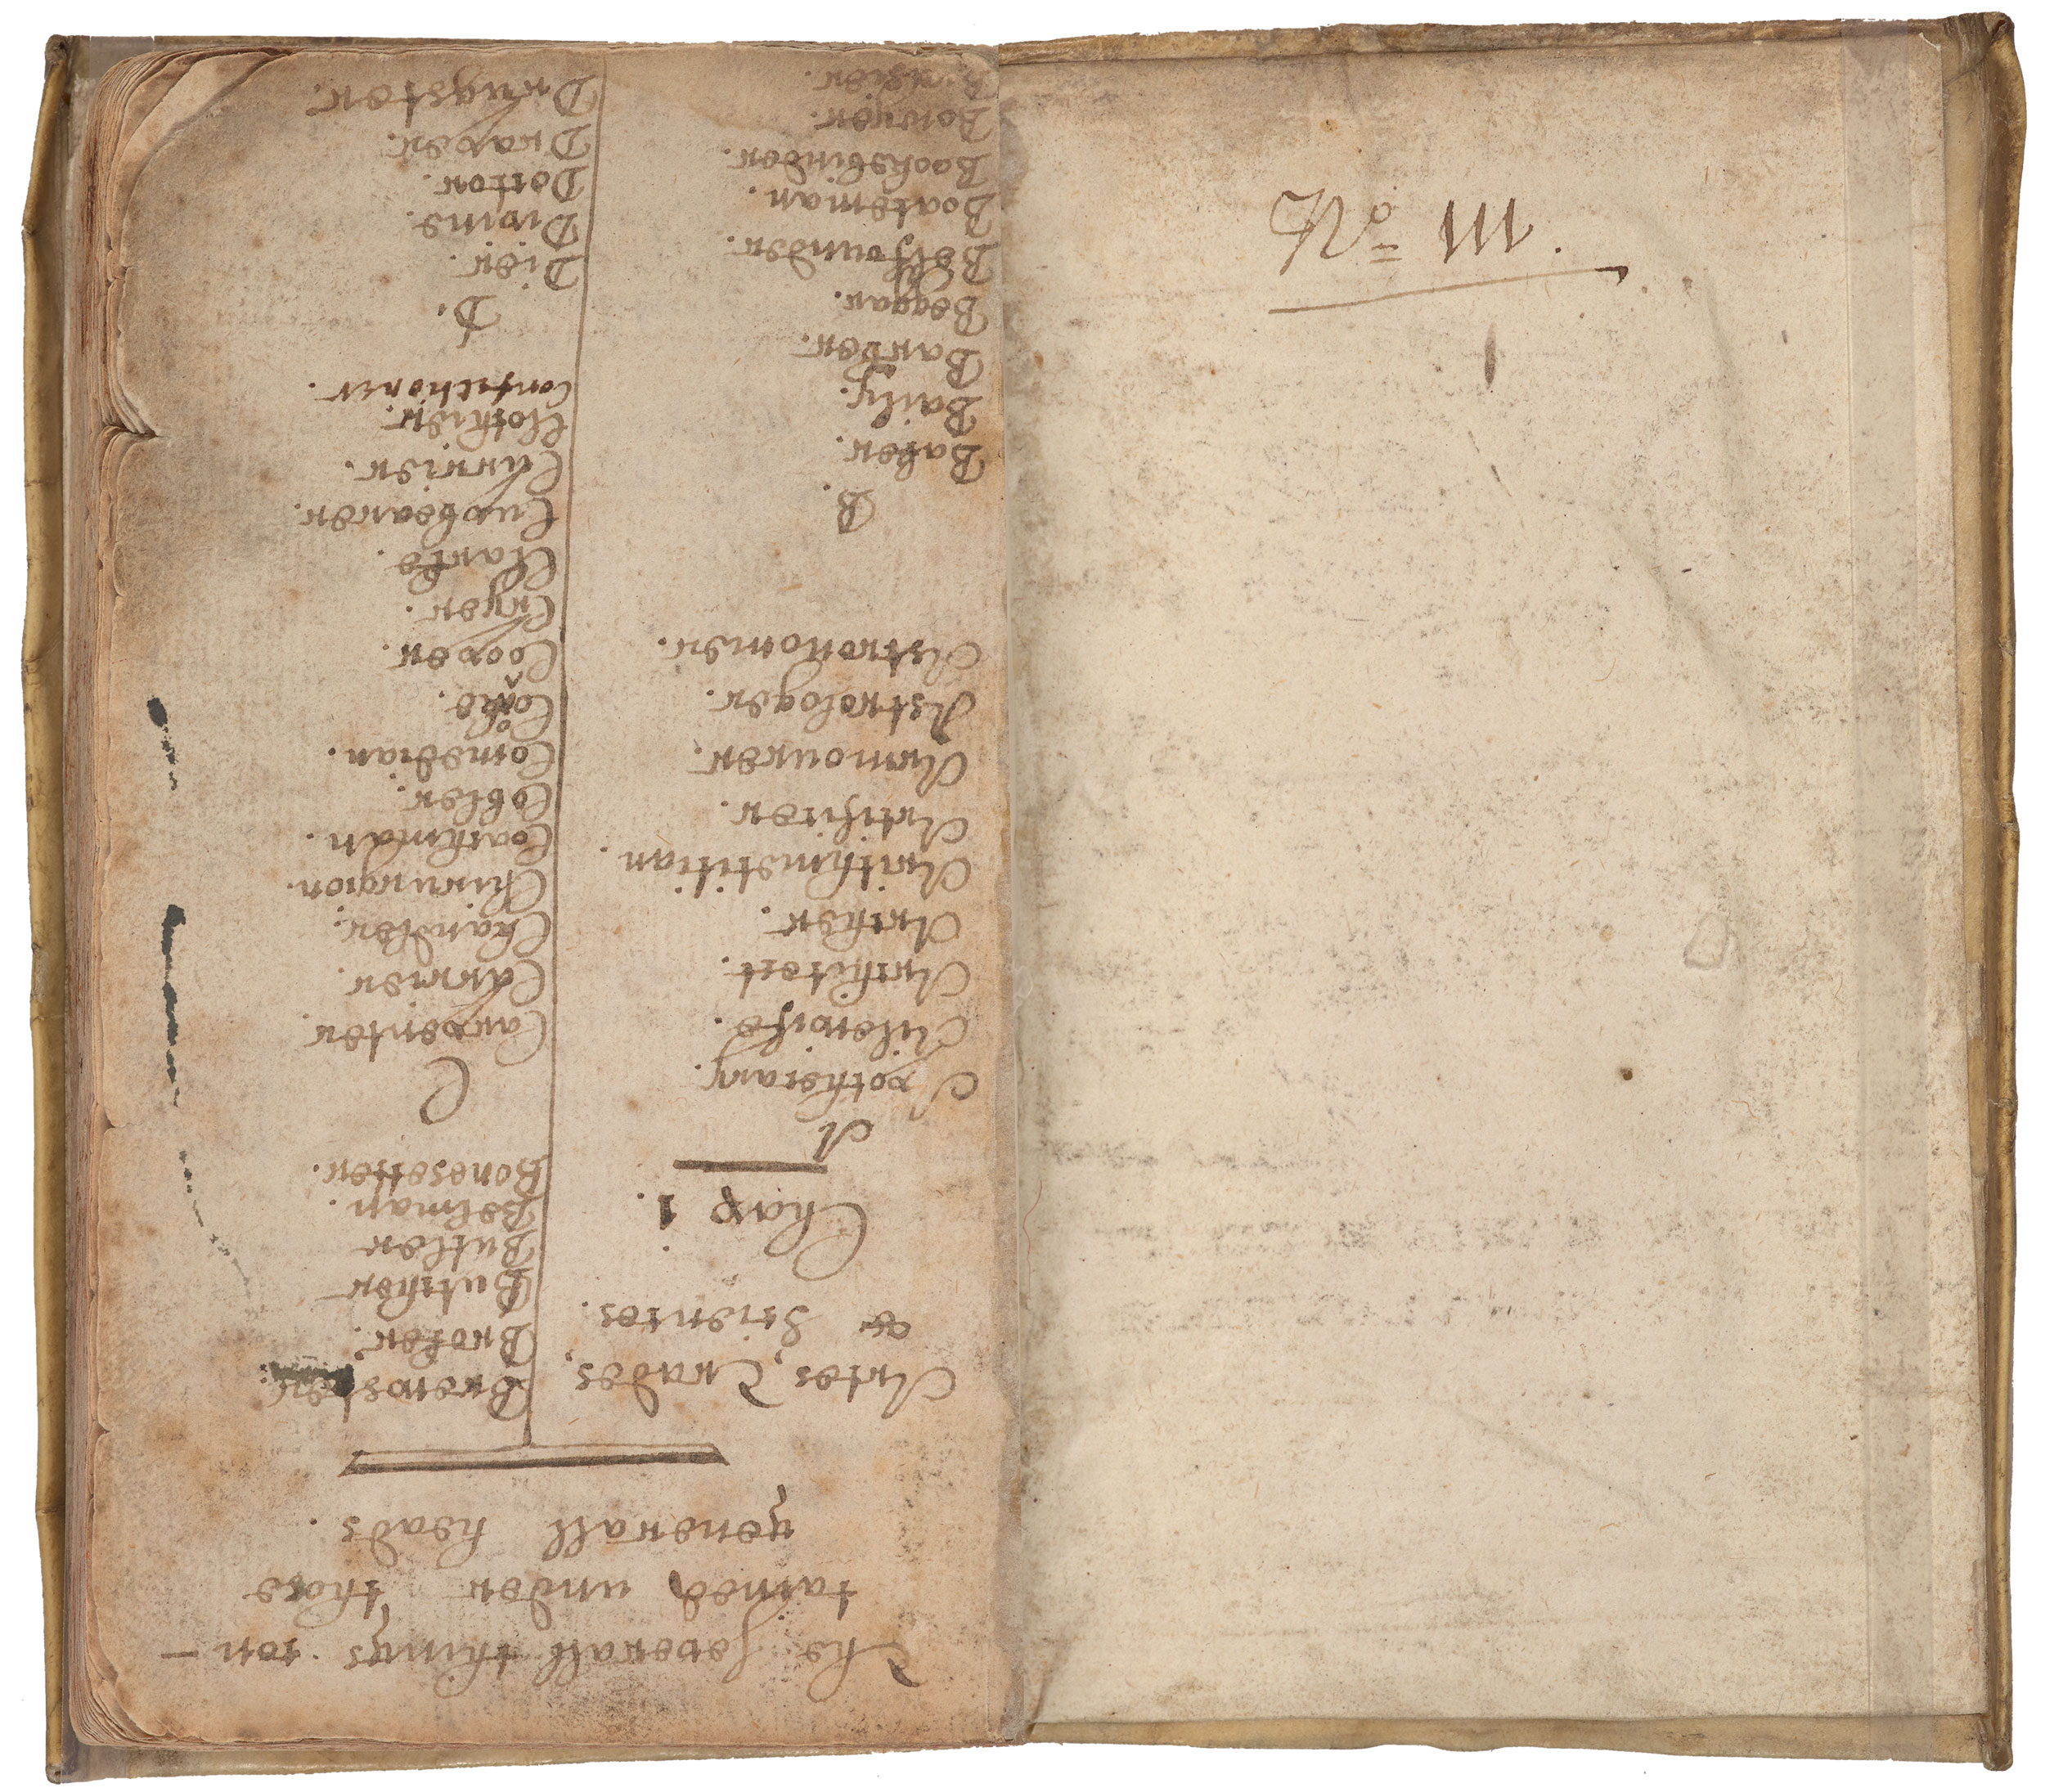 The severall things con-
tained under those
generall heads.
Artes, Trades,
& Sciences.
Chap 1.
A
Apothecary.
Alewife.
Architect.
Archer.
Arithmetitian.
Artificer.
Armourer.
Astrologer.
Astronomer.
B.
Baker.
Baily.
Barber.
Beggar.
Belfounder.
Boateman.
Bookebinder.
Bowyer.
Brasier.
Brewster.
Broker.
Butcher
Butler
Belman.
Bonesetter.
C
Carpenter.
Carrier.
Chandler.
Chirurgion.
Coachman.
Cobler.
Comedian.
Cooper.
Cryer.
Clarke.
Cupbearer.
Currier.
Clothier.
Confectioner.
D.
Dier.
Divine.
Doctor.
Draper.
Drugster.
No III.